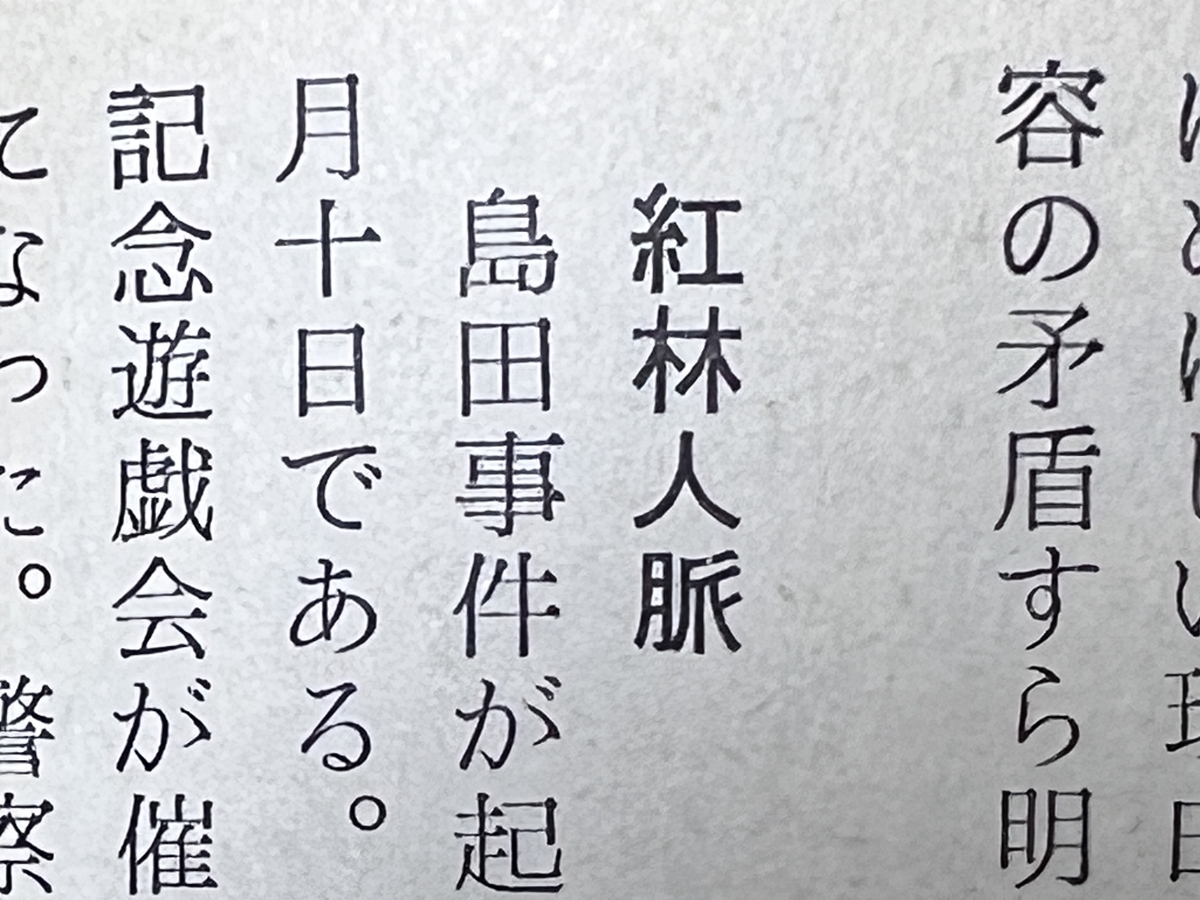 容の矛盾すら明
紅林人脈
島田事件が起
月十日である。
記念遊戯会が催
てなった。警察